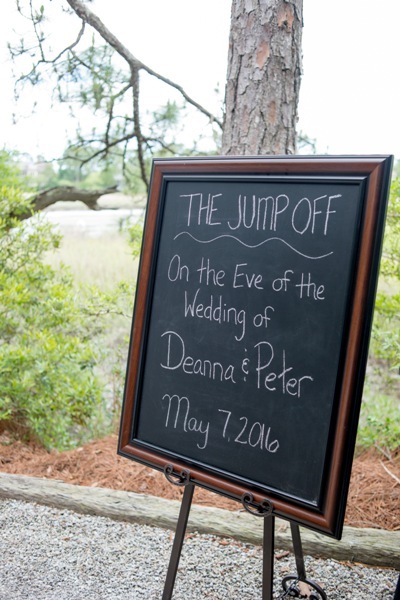 THE JUMP OFF
On the Eve of the
Wedding of
Deanna & Peter
May 7, 2016